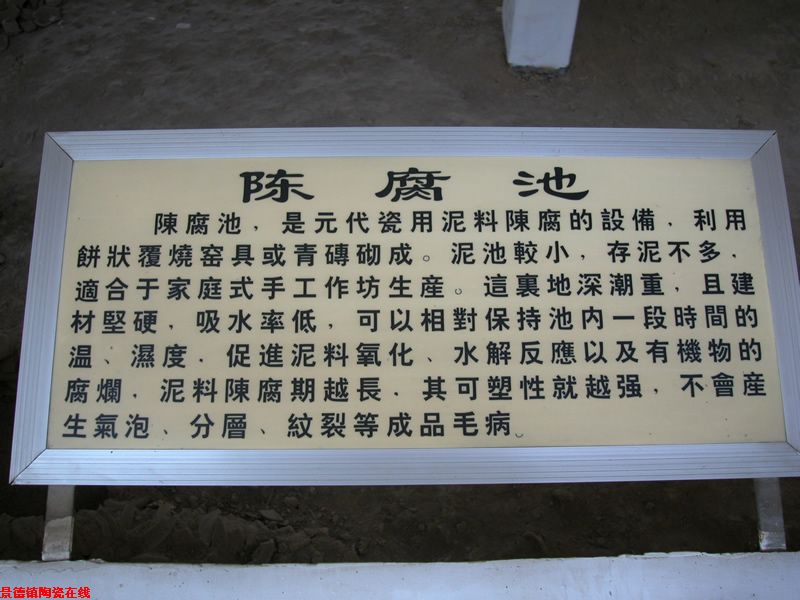 陈腐池
陳腐池，是元代瓷用泥料陳腐的設備，利用
餅狀覆燒窑具或青磚砌成。泥池較小，存泥不多，
適合于家庭式手工作坊生産。這裏地深潮重，且建
材堅硬，吸水率低，可以相對保持池内一段時間的
温、濕度，促進泥料氧化、水解反應以及有機物的
腐爛，泥料陳腐期越長，其可塑性就越强，不會産
生氣泡、分層、紋裂等成品毛病。
景德镇陶瓷在线